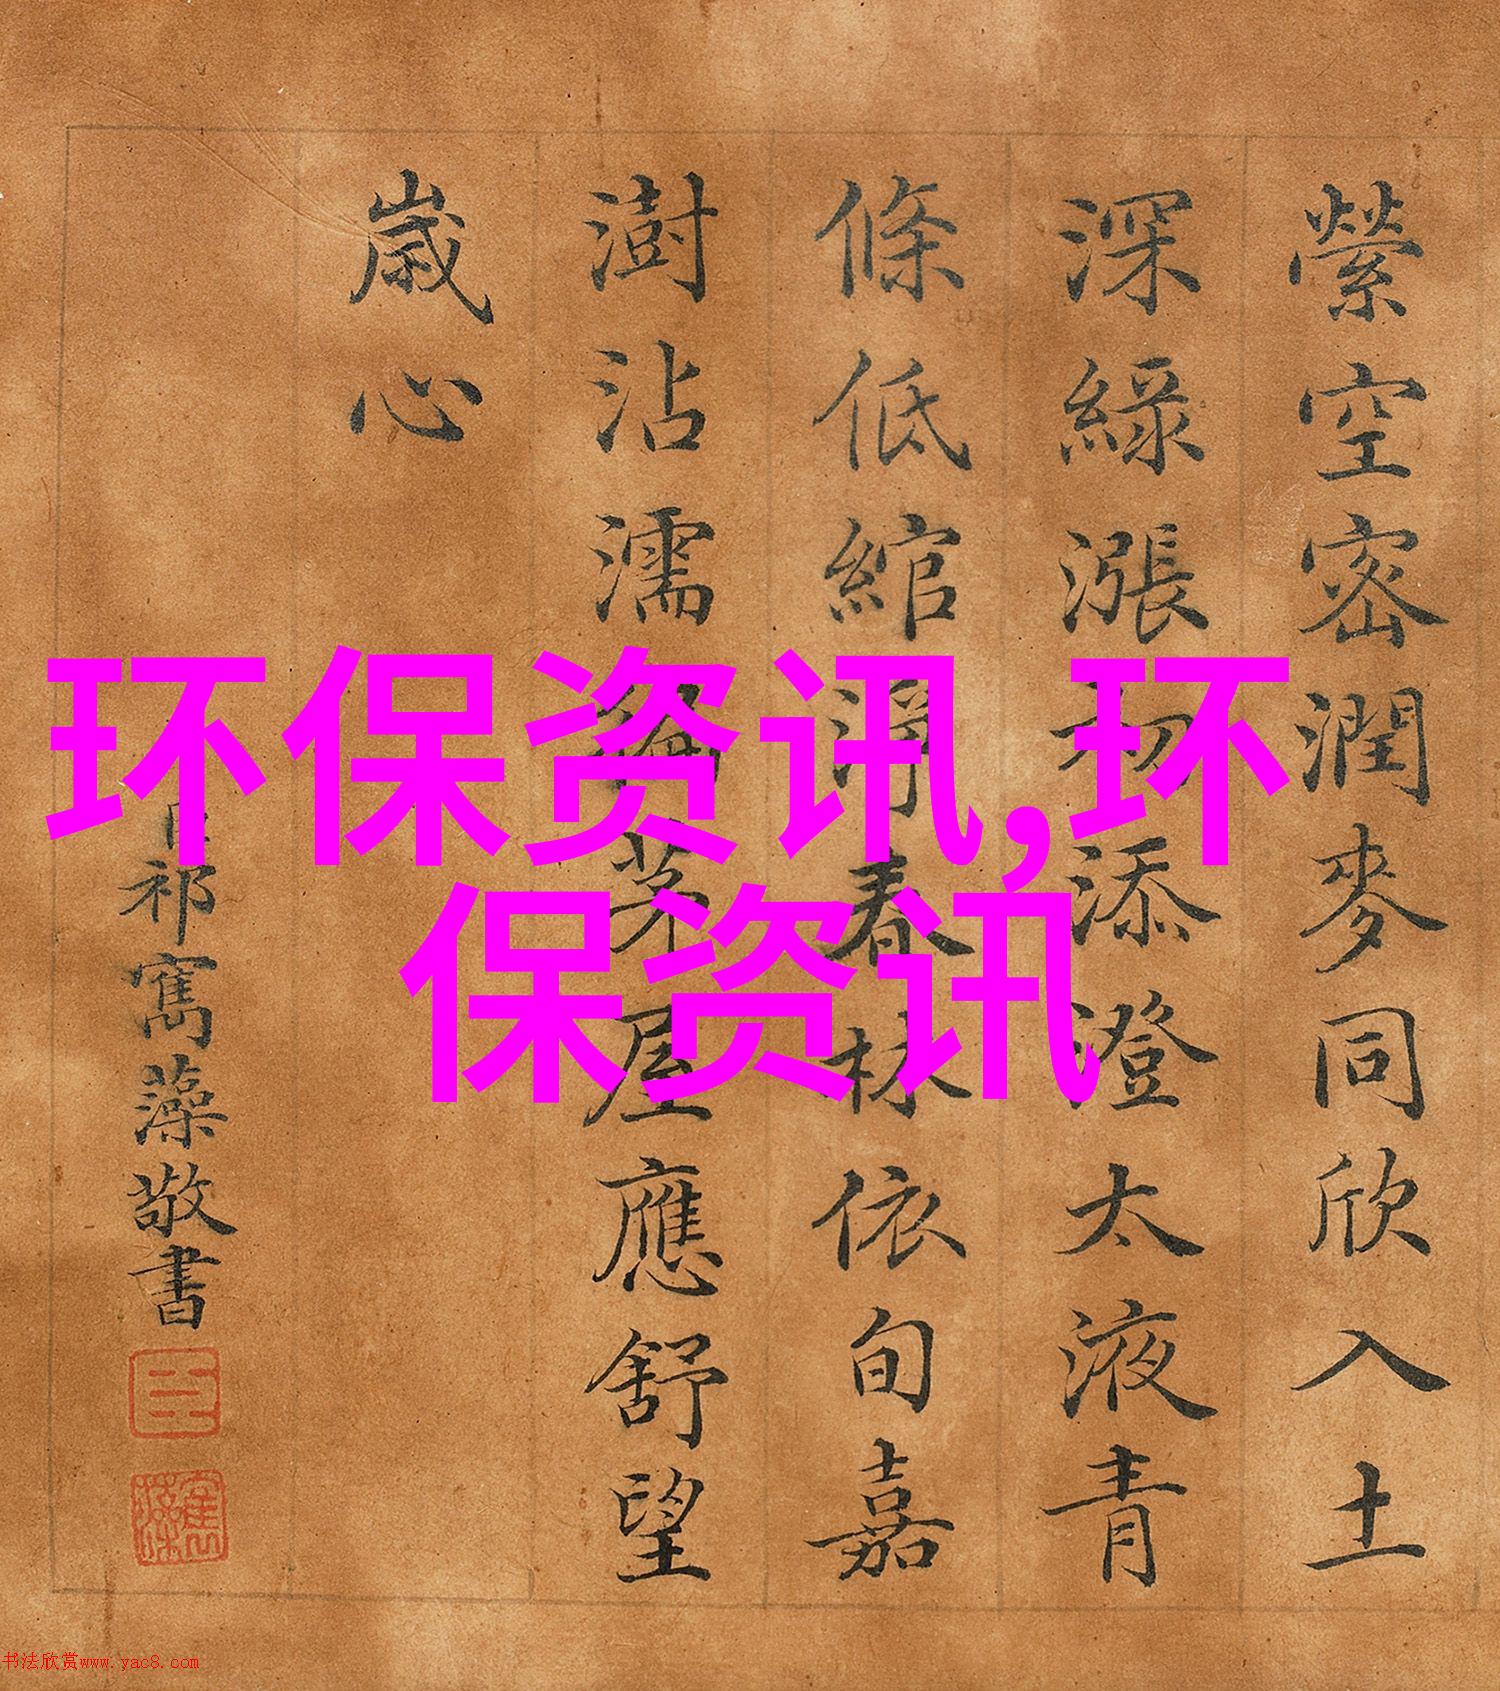 縈空密潤麥同欣入土
深綠漲初添澄太液青
條低綰淨春林依旬嘉
澍沾濡徧茅屋應舒望
歲心
臣祁寯藻敬書
环保资讯,环
保资讯
书法欣赏www.yac8.com